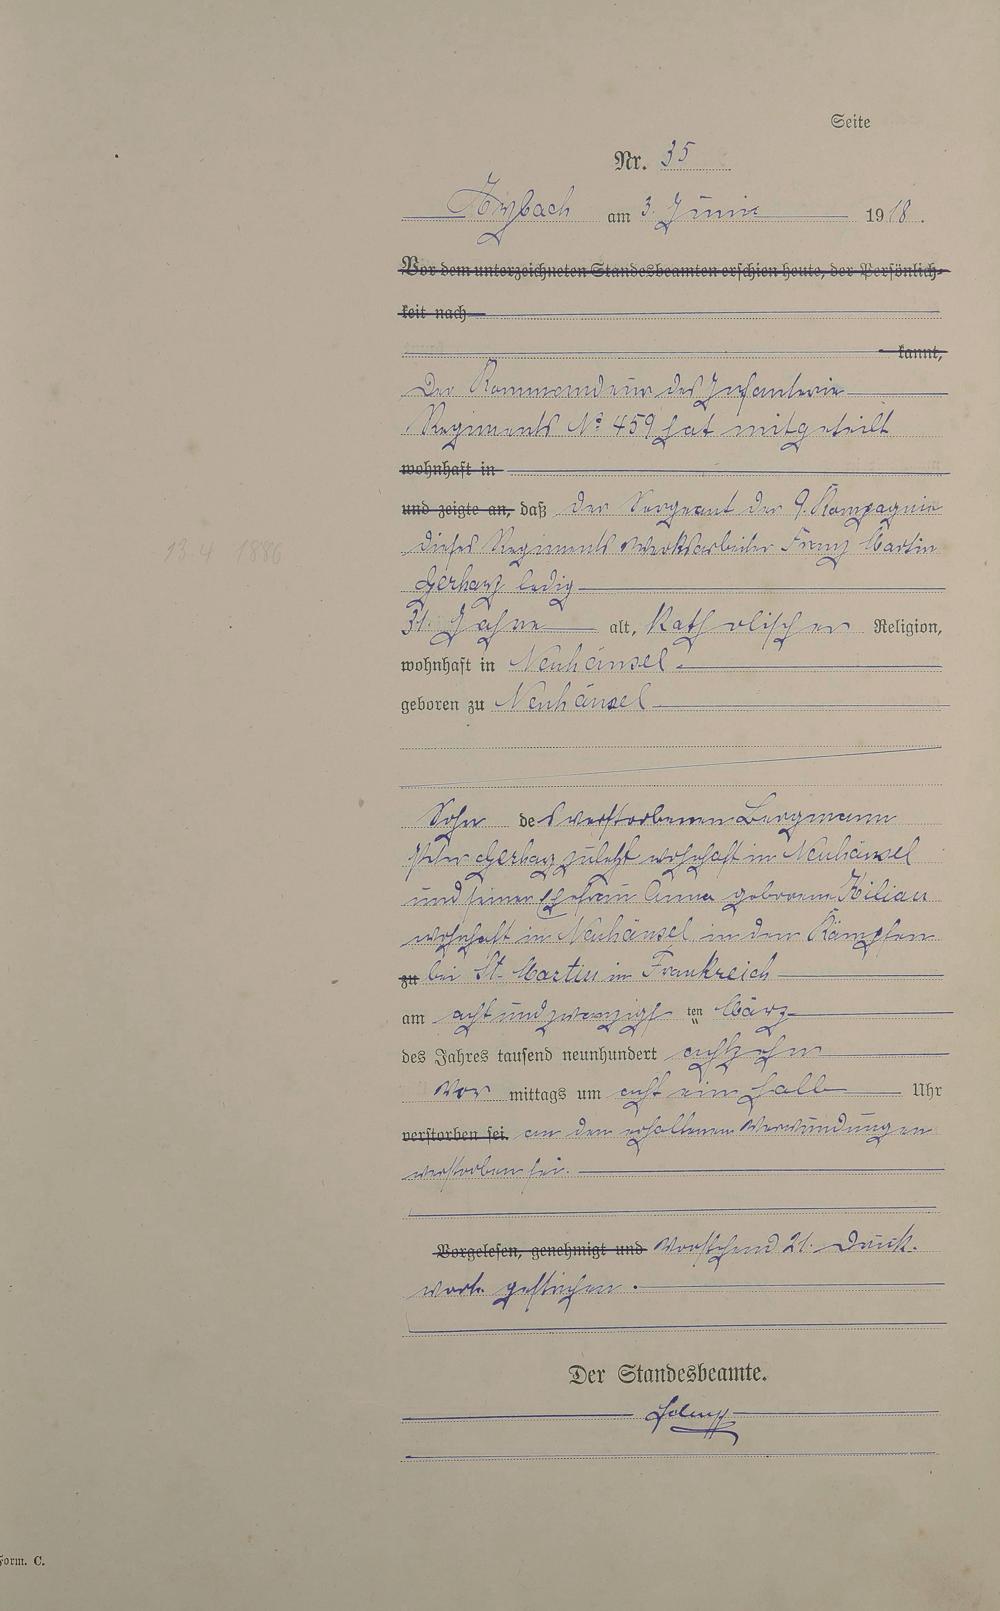 Seite
Nr. 35
Arzbach am 3. Juni 1918.
Vor dem unterzeichneten Standesbeamten erschien heute, der Persönlich-
keit nach
kannt,
Der Kommandeur des Infanterie
Regiments No 459 hat mitgeteilt
wohnhaft in
und zeigte an, daß der Sergeant der 9. Kompagnie
dieses Regiments Werksarbeiter Franz Martin
13.4 1886
Gerharz ledig
31. Jahre alt, katholischer Religion,
wohnhaft in Neuhäusel
geboren zu Neuhäusel
Sohn des verstorbenen Bergmann
Peter Gerharz zuletzt wohnhaft in Neuhäusel
und seiner Ehefrau Anna geborene Kilian
wohnhaft in Neuhäusel in den Kämpfen
zu bei St. Martin in Frankreich
am acht und zwanzigsten März
des Jahres tausend neunhundert achtzehn
vor mittags um acht ein halb Uhr
verstorben sei. an den erhaltenen Verwundungen
verstorben sei.
Vorgelesen, genehmigt und Vorstehend 21. Druck-
worte gestrichen.
Der Standesbeamte.
Form. C.